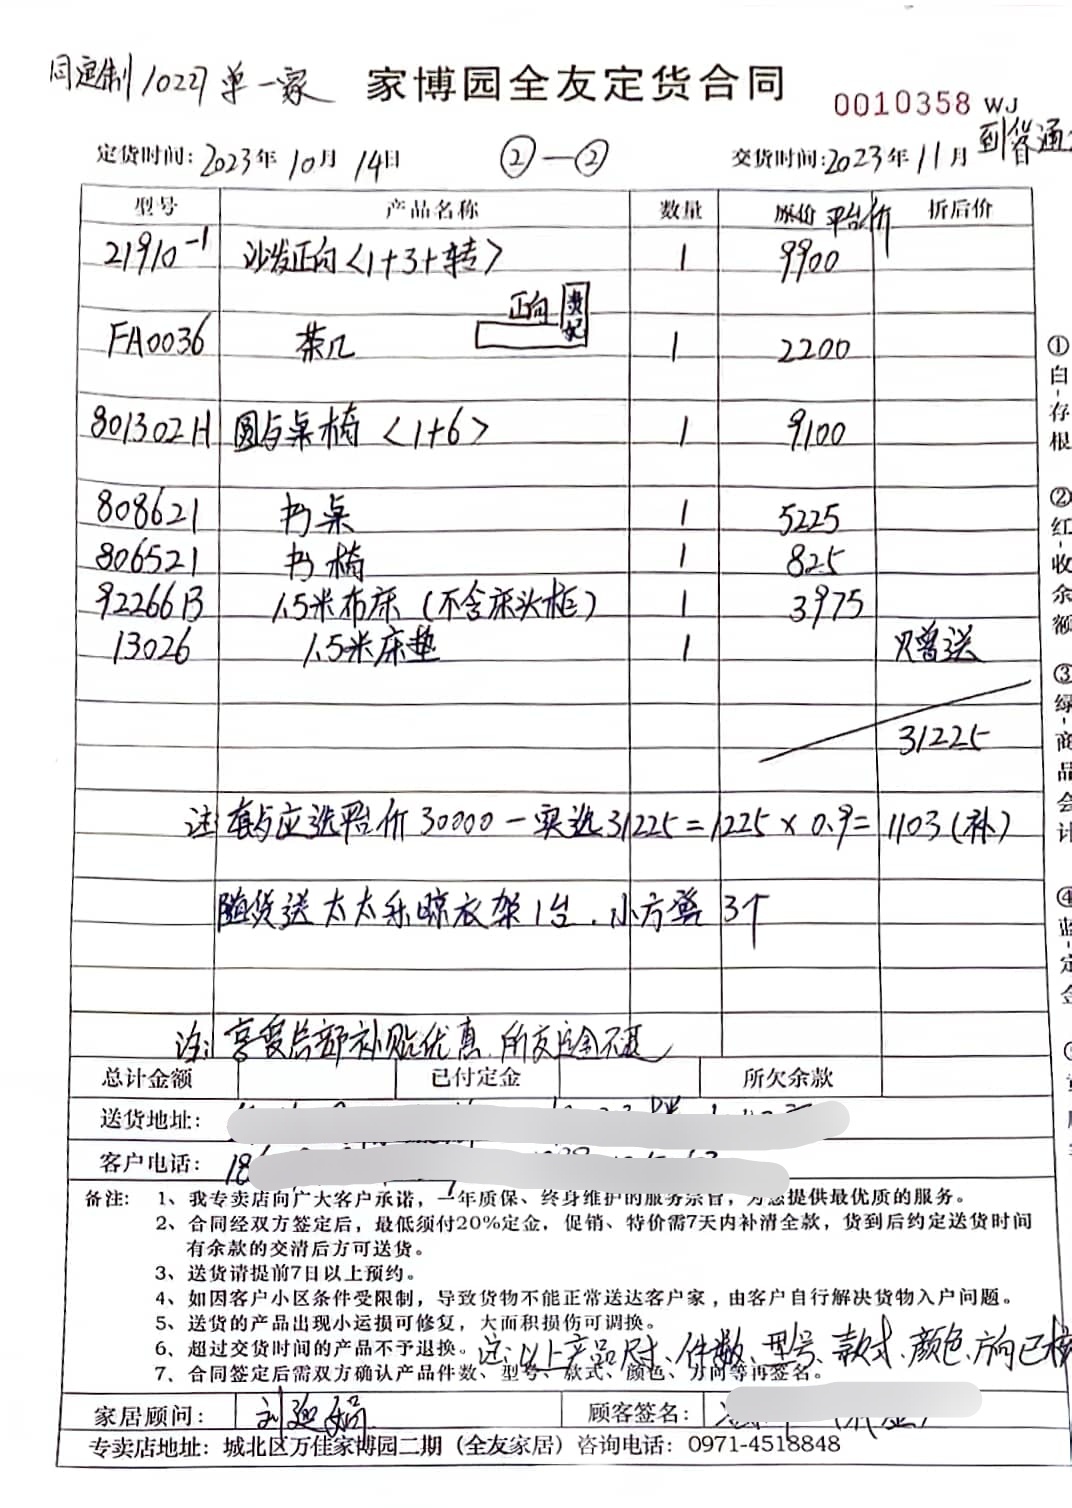 同定制1027单一家 家博园全友定货合同 0010358 WJ
定货时间:2023年10月14日 ②—② 交货时间:2023年11月 到货通
型号 产品名称 数量 原价 平台价 折后价
21910-1 沙发正向<1+3+转> 1 9900
正向 贵妃
FA0036 茶几 1 2200
801302H 圆与桌椅<1+6> 1 9100
808621 书桌 1 5225
806521 书椅 1 825
92266B 1.5米布床(不含床头柜) 1 3975
13026 1.5米床垫 1 赠送
31225
注:套与应选平台价30000-实选31225=1225×0.9=1103(补)
随货送太太乐晾衣架1台.小方凳3个
注:享受总部补贴优惠.所交定金不退
总计金额 已付定金 所欠余款
送货地址:
客户电话:186
备注:1、我专卖店向广大客户承诺,一年质保、终身维护的服务宗旨,为您提供最优质的服务。
2、合同经双方签定后,最低须付20%定金,促销、特价需7天内补清全款,货到后约定送货时间
有余款的交清后方可送货。
3、送货请提前7日以上预约。
4、如因客户小区条件受限制,导致货物不能正常送达客户家,由客户自行解决货物入户问题。
5、送货的产品出现小运损可修复,大面积损伤可调换。
6、超过交货时间的产品不予退换。
注:以上产品尺寸、件数、型号、款式、颜色、方向已核
7、合同签定后需双方确认产品件数、型号、款式、颜色、方向等再签名。
家居顾问: 刘 娟 顾客签名:
专卖店地址:城北区万佳家博园二期(全友家居)咨询电话:0971-4518848
①白-存根
②红-收余额
③绿-商品会计
④蓝-定金